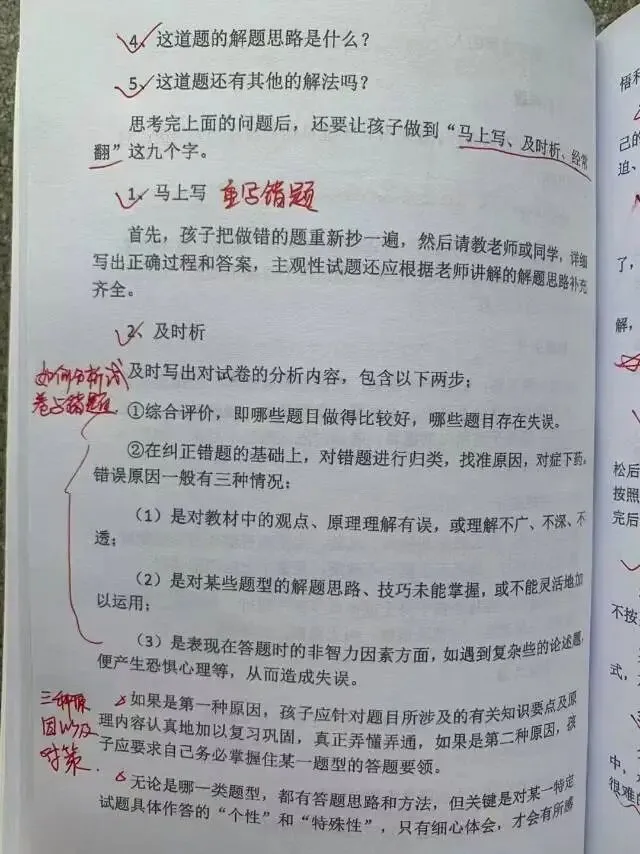 4、这道题的解题思路是什么？
5、这道题还有其他的解法吗？
思考完上面的问题后，还要让孩子做到“马上写、及时析、经常
翻”这九个字。
1、马上写 重写错题
首先，孩子把做错的题重新抄一遍，然后请教老师或同学，详细
写出正确过程和答案，主观性试题还应根据老师讲解的解题思路补充
齐全。
2、及时析
如何分析试
卷与错题
及时写出对试卷的分析内容，包含以下两步；
①综合评价，即哪些题目做得比较好，哪些题目存在失误。
②在纠正错题的基础上，对错题进行归类，找准原因，对症下药，
错误原因一般有三种情况；
（1）是对教材中的观点、原理理解有误，或理解不广、不深、不
透；
（2）是对某些题型的解题思路、技巧未能掌握，或不能灵活地加
以运用；
（3）是表现在答题时的非智力因素方面，如遇到复杂些的论述题，
便产生恐惧心理等，从而造成失误。
三种原
因以及
对策
如果是第一种原因，孩子应针对题目所涉及的有关知识要点及原
理内容认真地加以复习巩固，真正弄懂弄通，如果是第二种原因，孩
子应要求自己务必掌握住某一题型的答题要领。
无论是哪一类题型，都有答题思路和方法，但关键是对某一特定
试题具体作答的“个性”和“特殊性”，只有细心体会，才会有所感
悟和
己的
迫、
了，
解，
松后
按照
完后
不按
式，
中，
很难的